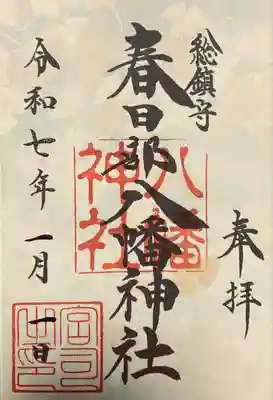 奉拝
総鎮守
春日部八幡神社
八幡
神社
令和七年一月
一日
宮司
之印